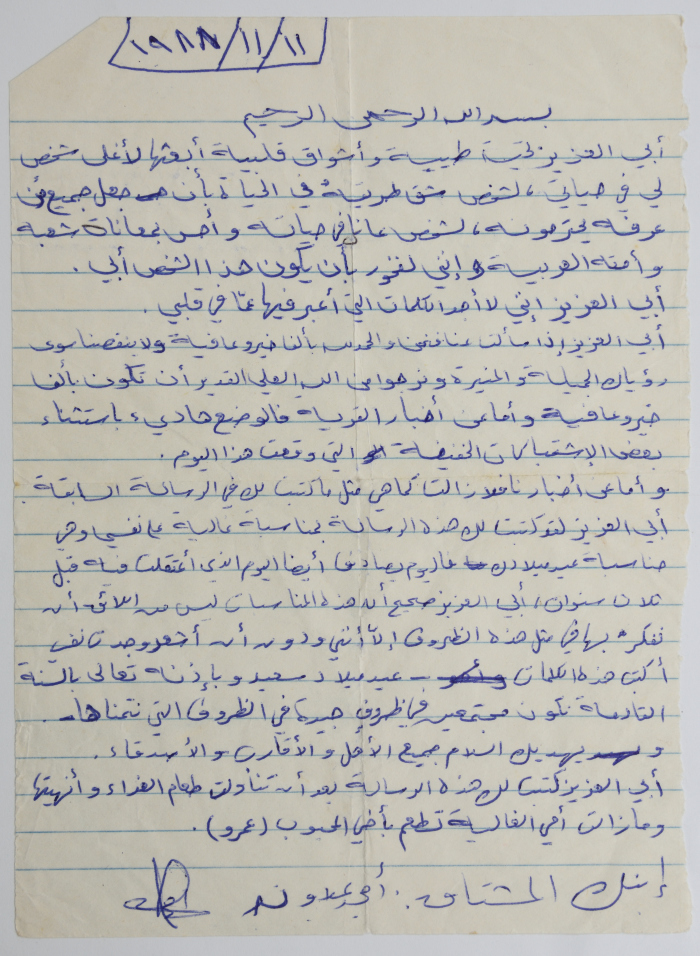 ١٩٨٨/١١/١١
بسم الله الرحمن الرحيم
أبي العزيز تحية طيبة وأشواق قلبية أبعثها لأغلى شخص
لي في حياتي، لشخص شق طريقه في الحياة بأن جعل جميع من
عرفه يحترمونه، لشخص عانا في حياته وأحس بمعاناة شعبه
وأمته العربية وإني لفخور بأن يكون هذا الشخص أبي.
أبي العزيز إنني لا أجد الكلمات التي أعبر فيها عمّا في قلبي.
أبي العزيز إذا سألت عنا فنحن والحمد لله بألف خير وعافية ولا ينقصنا سوى
رؤياك الجميلة والمنيرة ونرجو من الله العلي القدير أن تكون بألف
خير وعافية وأما عن أخبار القرية فالوضع هاديء باستثناء
بعض الإشتباكات الخفيفة التي وقعت هذا اليوم.
وأما عن أخبارنا فلا زالت كما هي مثل ما كتبت لك في الرسالة السابقة.
أبي العزيز لقد كتبت لك هذه الرسالة بمناسبة غالية على نفسي وهي
مناسبة عيد ميلادك فاليوم يصادف أيضا اليوم الذي أعتقلت فيه قبل
ثلاث سنوات، أبي العزيز صحيح أن هذه المناسبات ليس من اللائق أن
نفكر بها في مثل هذه الظروف إلا أنني ودون أن أشعر وجدت نفسي
أكتب هذه الكلمات عيد ميلاد سعيد وبإذنه تعالى بالسنة
القادمة نكون مجتمعين في ظروف جيدة في الظروف التي نتمناها.
و يهديك السلام جميع الأهل والأقارب والأصدقاء.
أبي العزيز كتبت لك هذه الرسالة بعد أن تناولت طعام الغداء وأنهيتها
وما زالت أمي الغالية تطعم بأخي المحبوب (عمرو).
إبنك المشتاق: